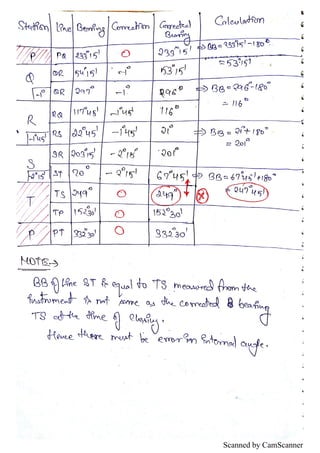 Station Line Bearing Correction Corrected Bearing Calculation
P PQ 233°15' 0 233°15' ⇒ BB = 233°15' - 180°
= 53°15'
Q QP 54°15' -1° 53°15'
-1° QR 297° -1° 296° ⇒ BB = 296° - 180°
= 116°
R RQ 117°45' -1°45' 116°
-1°45' RS 22°45' -1°45' 21° ⇒ BB = 21° + 180°
= 201°
S SR 203°15' -2°15' 201°
-2°15' ST 70° -2°15' 67°45' ⇒ BB = 67°45' + 180°
= 247°45'
T TS 249° 0 249°
TP 152°30' 0 152°30'
P PT 332°30' 0 332°30'
NOTE →
BB of line ST is equal to TS measured from the
instrument is not same as the corrected B bearing
TS at the time of closing.
Hence there must be error in internal angle.
Scanned by CamScanner